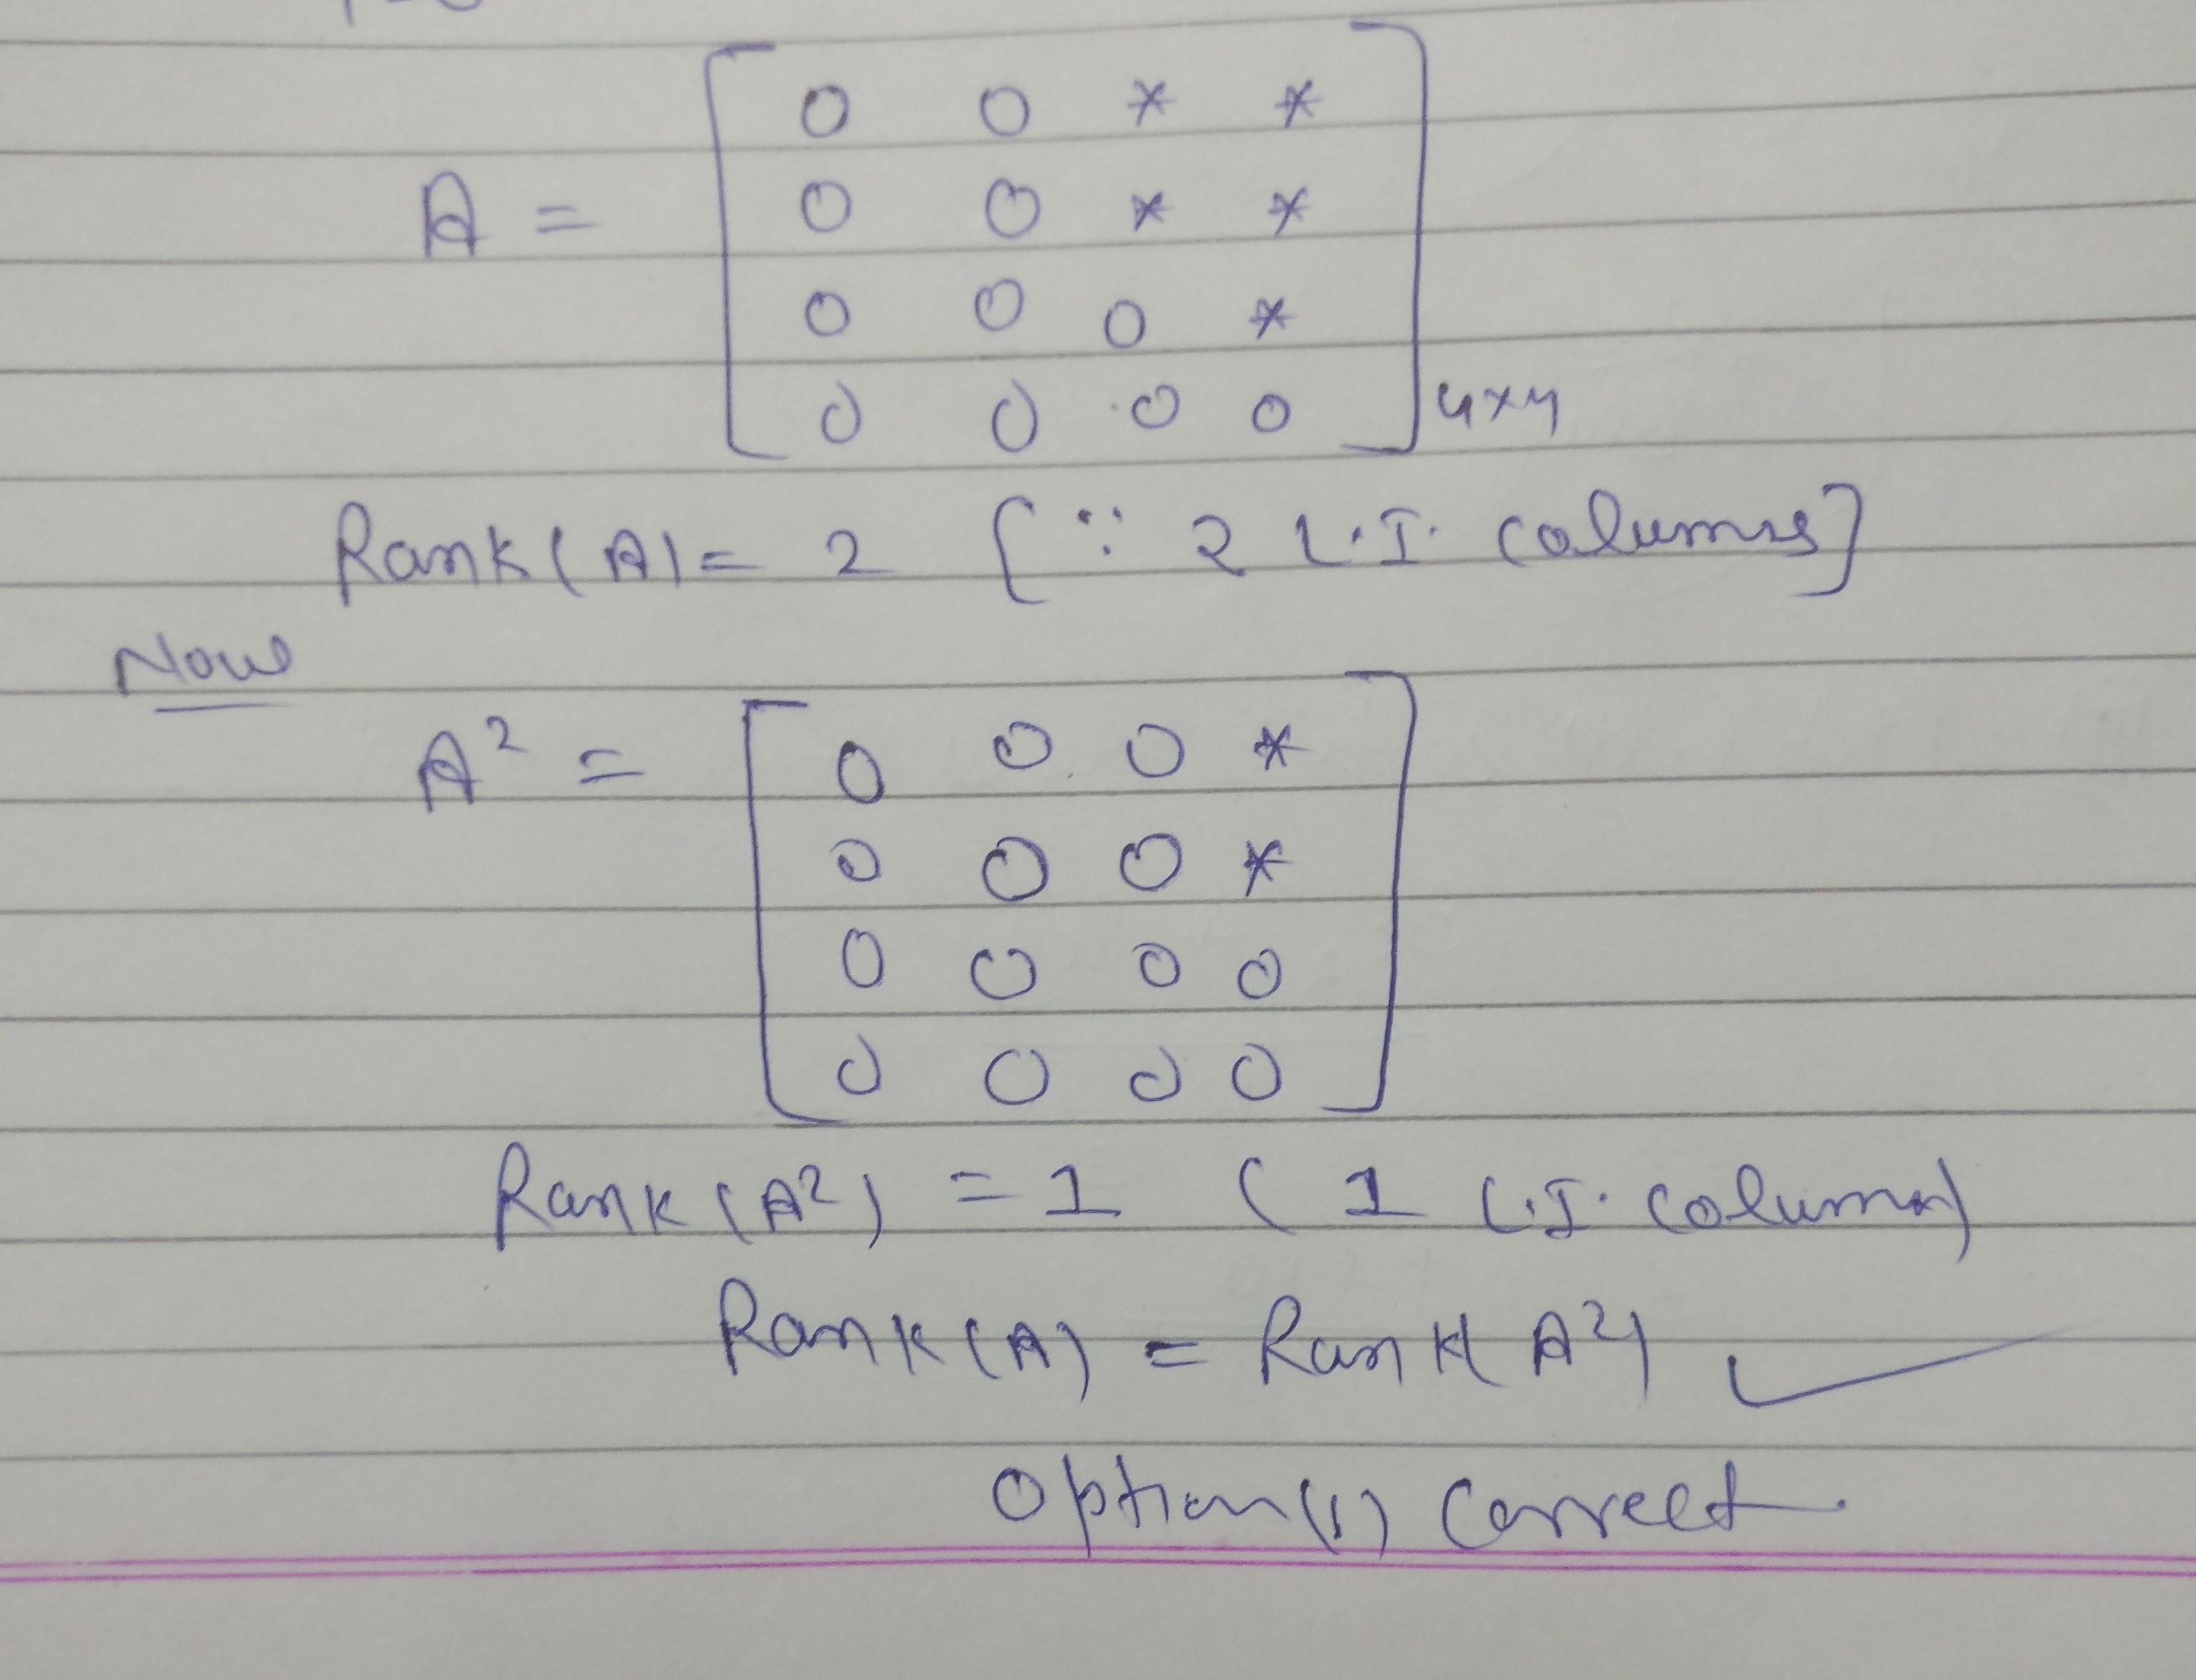 A = [ 0 0 * *
0 0 * *
0 0 0 *
0 0 0 0 ] 4×4
Rank(A) = 2 [∵ 2 L.I. columns]
Now
A² = [ 0 0 0 *
0 0 0 *
0 0 0 0
0 0 0 0 ]
Rank(A²) = 1 ( 1 L.I. column)
Rank(A) = Rank(A²) ✓
Option(1) Correct.